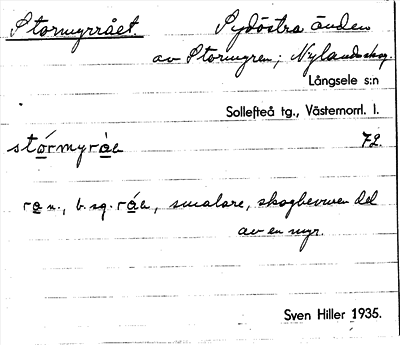 Stormyrrået. Sydöstra änden
av Stormyren; Nylandsskog.
Långsele s:n
Sollefteå tg., Västernorrl. l.
stórmyráe 72.
rá n., b. sg. ráe, smalare, skogbevuxen del
av en myr.
Sven Hiller 1935.